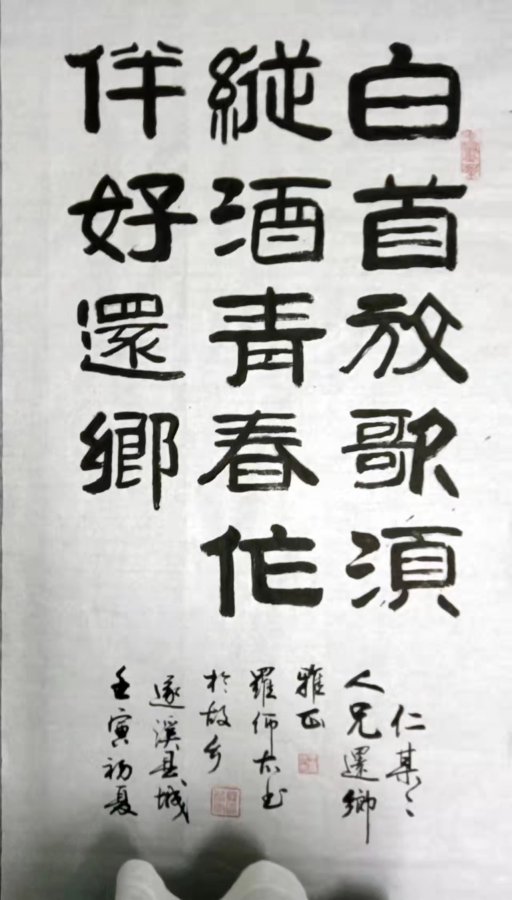 白首放歌須
縱酒青春作
伴好還鄉
仁某々
人兄還鄉
雅正
羅师书
於故乡
遂溪县城
壬寅初夏